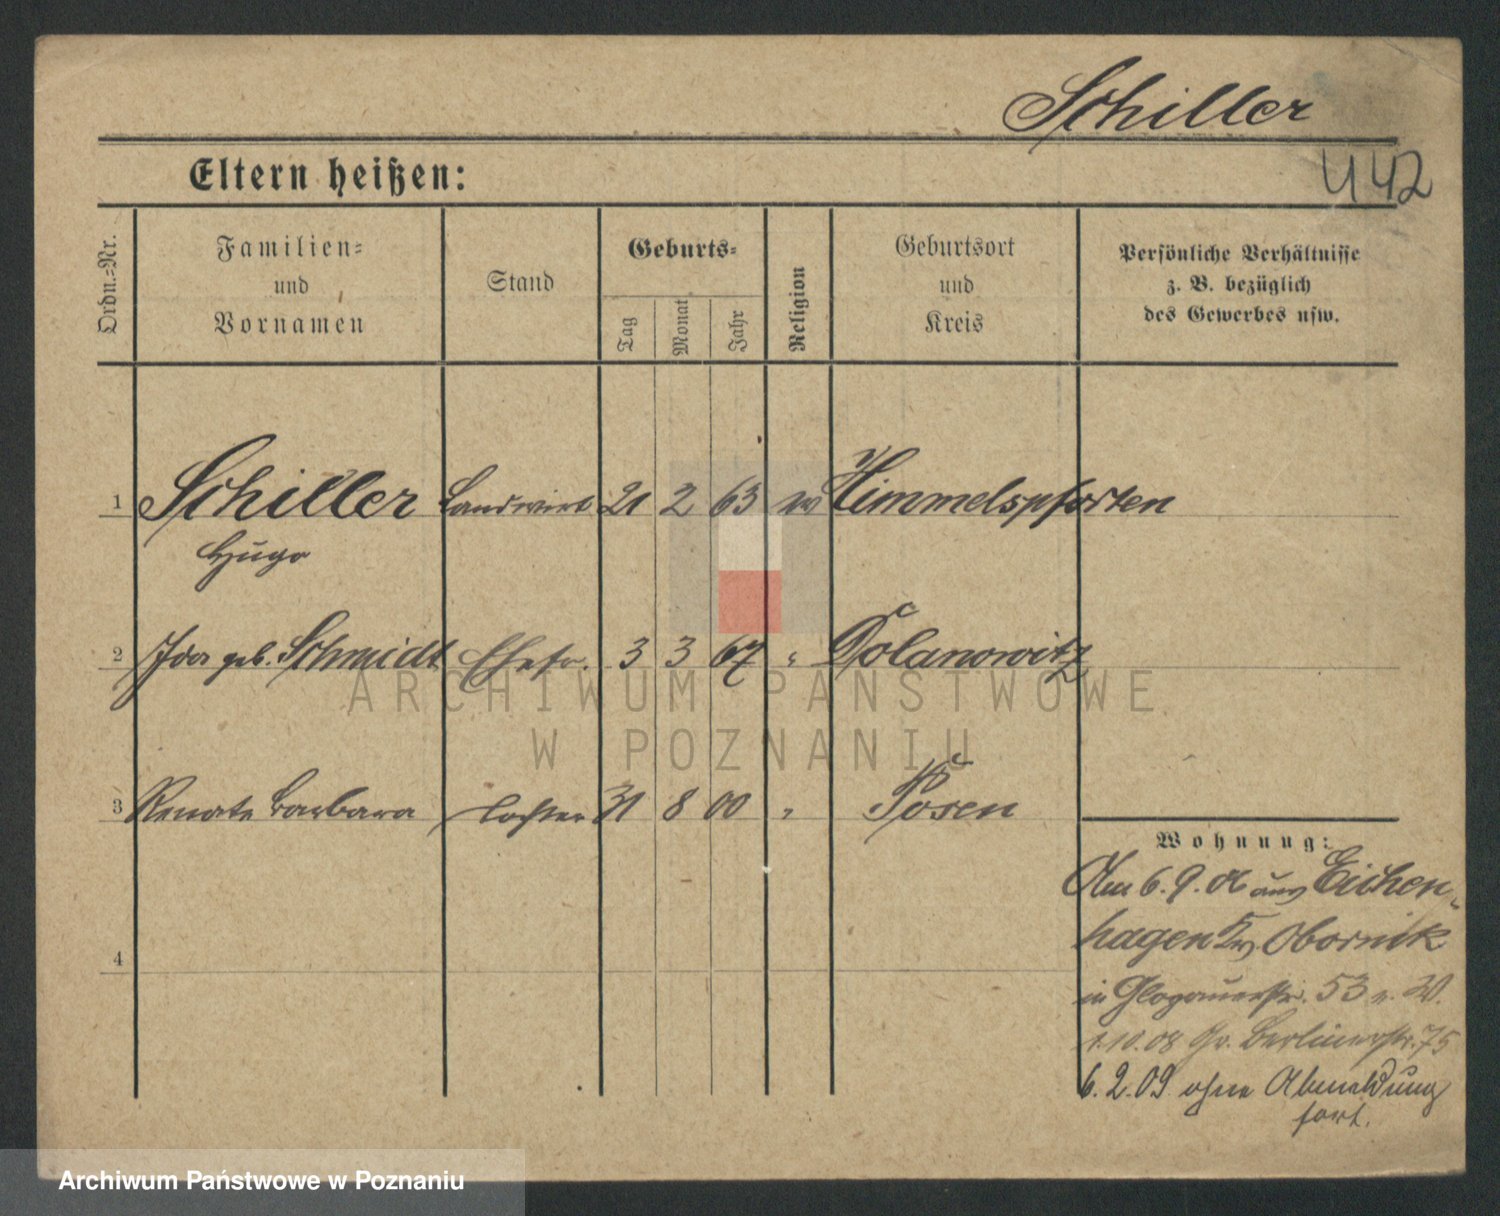 Schiller
442
Eltern heißen:
Ordn.-Nr.
Familien-
und
Vornamen
Stand
Geburts-
Tag
Monat
Jahr
Religion
Geburtsort
und
Kreis
Persönliche Verhältnisse
z. B. bezüglich
des Gewerbes usw.
1 Schiller Landwirt 21 2 63 Himmelspforten
Hugo
2 Ida geb. Schmidt Ehefr. 3 3 67 " Dolanowitz
ARCHIWUM PAŃSTWOWE
W POZNANIU
3 Renate Barbara Tochter 31 8 00 " Posen
Wohnung:
Am 6.9.06 aus Eichen-
hagen Kr. Obornik
in Glogauerstr. 53 r. W.
1.10.08 Gr. Berlinerstr. 75
4
6.2.09 ohne Abmeldung
fort.
Archiwum Państwowe w Poznaniu